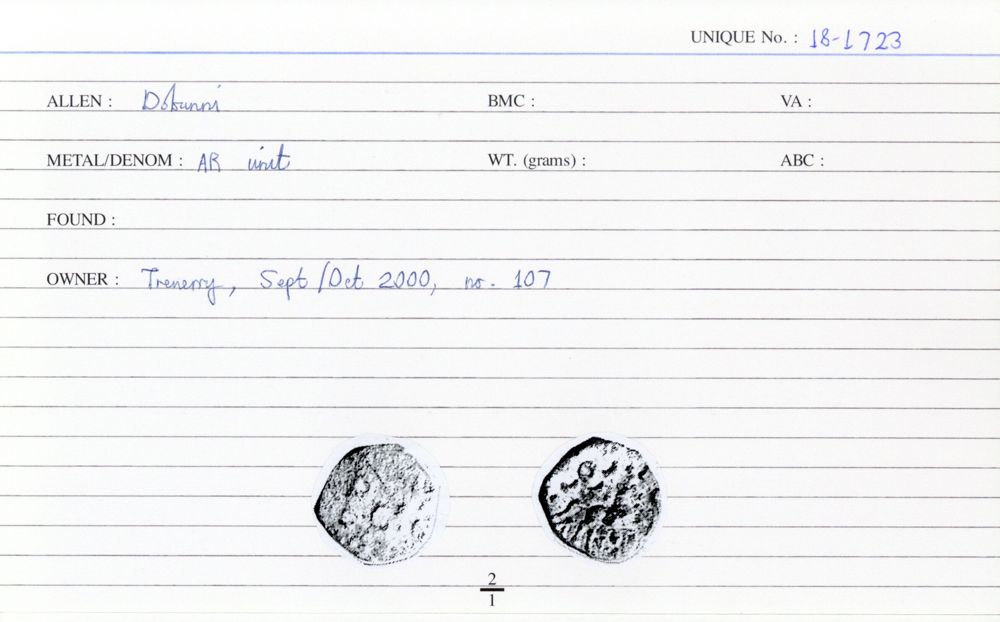 UNIQUE No. : 18-1723
ALLEN : Dobunni BMC : VA :
METAL/DENOM : AR unit WT. (grams) : ABC :
FOUND :
OWNER : Trenerry, Sept/Oct 2000, no. 107
2
1